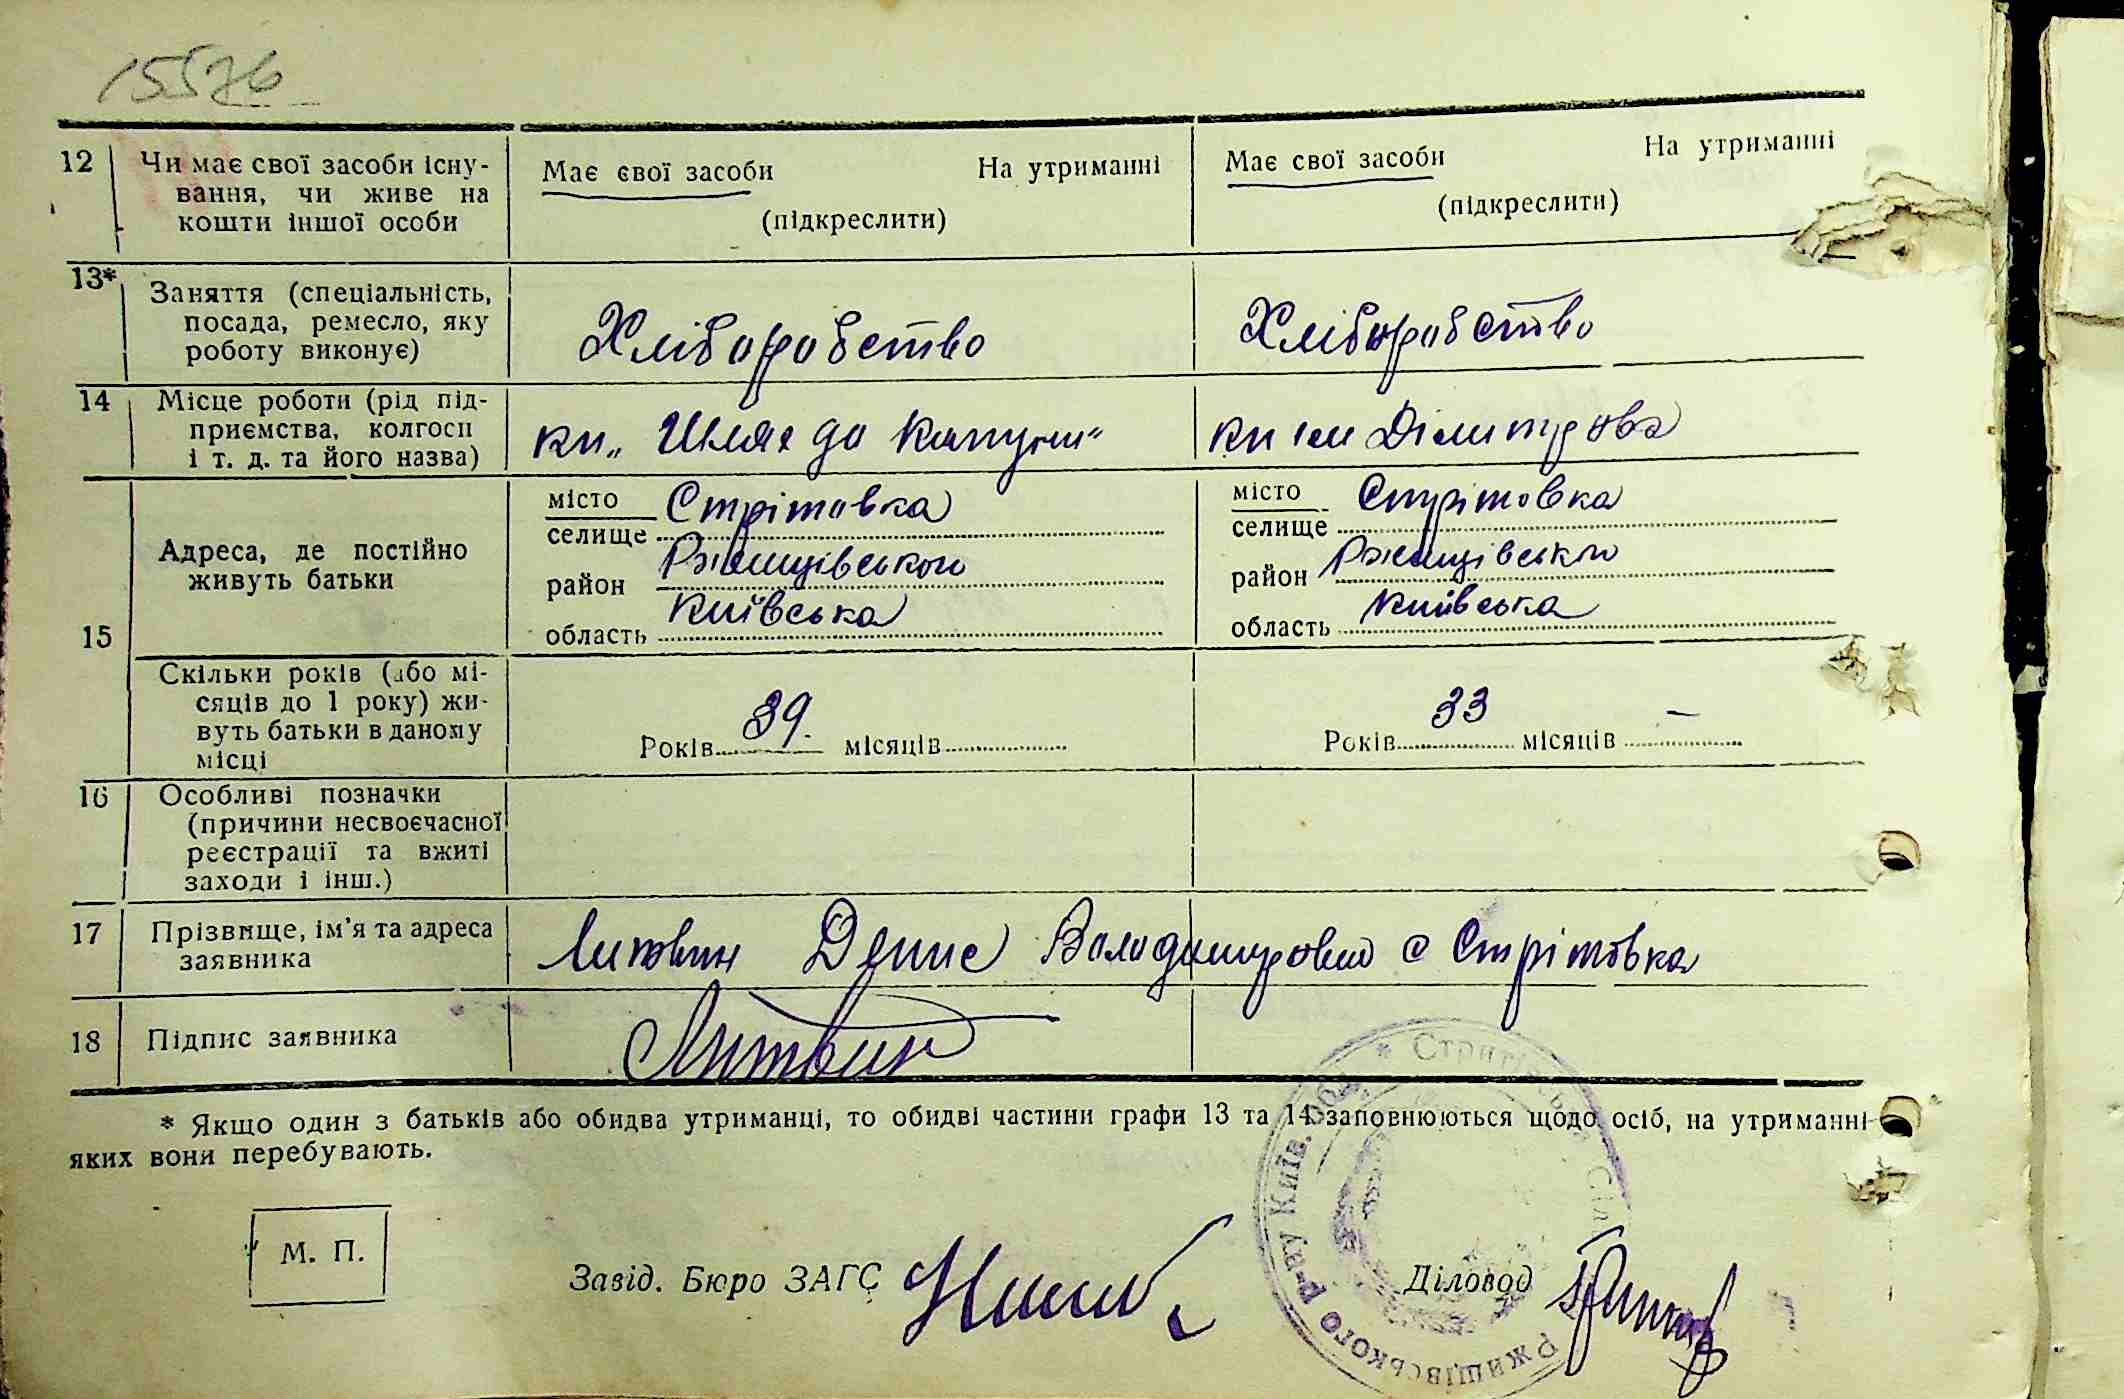 15576
12 Чи має свої засоби існу-
вання, чи живе на
кошти іншої особи
Має свої засоби На утриманні
(підкреслити)
Має свої засоби На утриманні
(підкреслити)
13* Заняття (спеціальність,
посада, ремесло, яку
роботу виконує)
Хліборобство
Хліборобство
14 Місце роботи (рід під-
приємства, колгосп
і т. д. та його назва)
кп „Шлях до Комуни“
кп ім Дімитрова
15
Адреса, де постійно
живуть батьки
місто Стрітовка
селище
район Ржищівського
область Київська
місто Стрітовка
селище
район Ржищівського
область Київська
Скільки років (або мі-
сяців до 1 року) жи-
вуть батьки в даному
місці
Років 39. місяців
Років 33 місяців —
16 Особливі позначки
(причини несвоєчасної
реєстрації та вжиті
заходи і інш.)
17 Прізвище, ім’я та адреса
заявника
Литвин Денис Володимирович с Стрітовка
18 Підпис заявника
Литвин
* Якщо один з батьків або обидва утриманці, то обидві частини графи 13 та 14 заповнюються щодо осіб, на утриманні
яких вони перебувають.
М. П.
Завід. Бюро ЗАГС
Діловод
Ржищівського р-ну Київ.